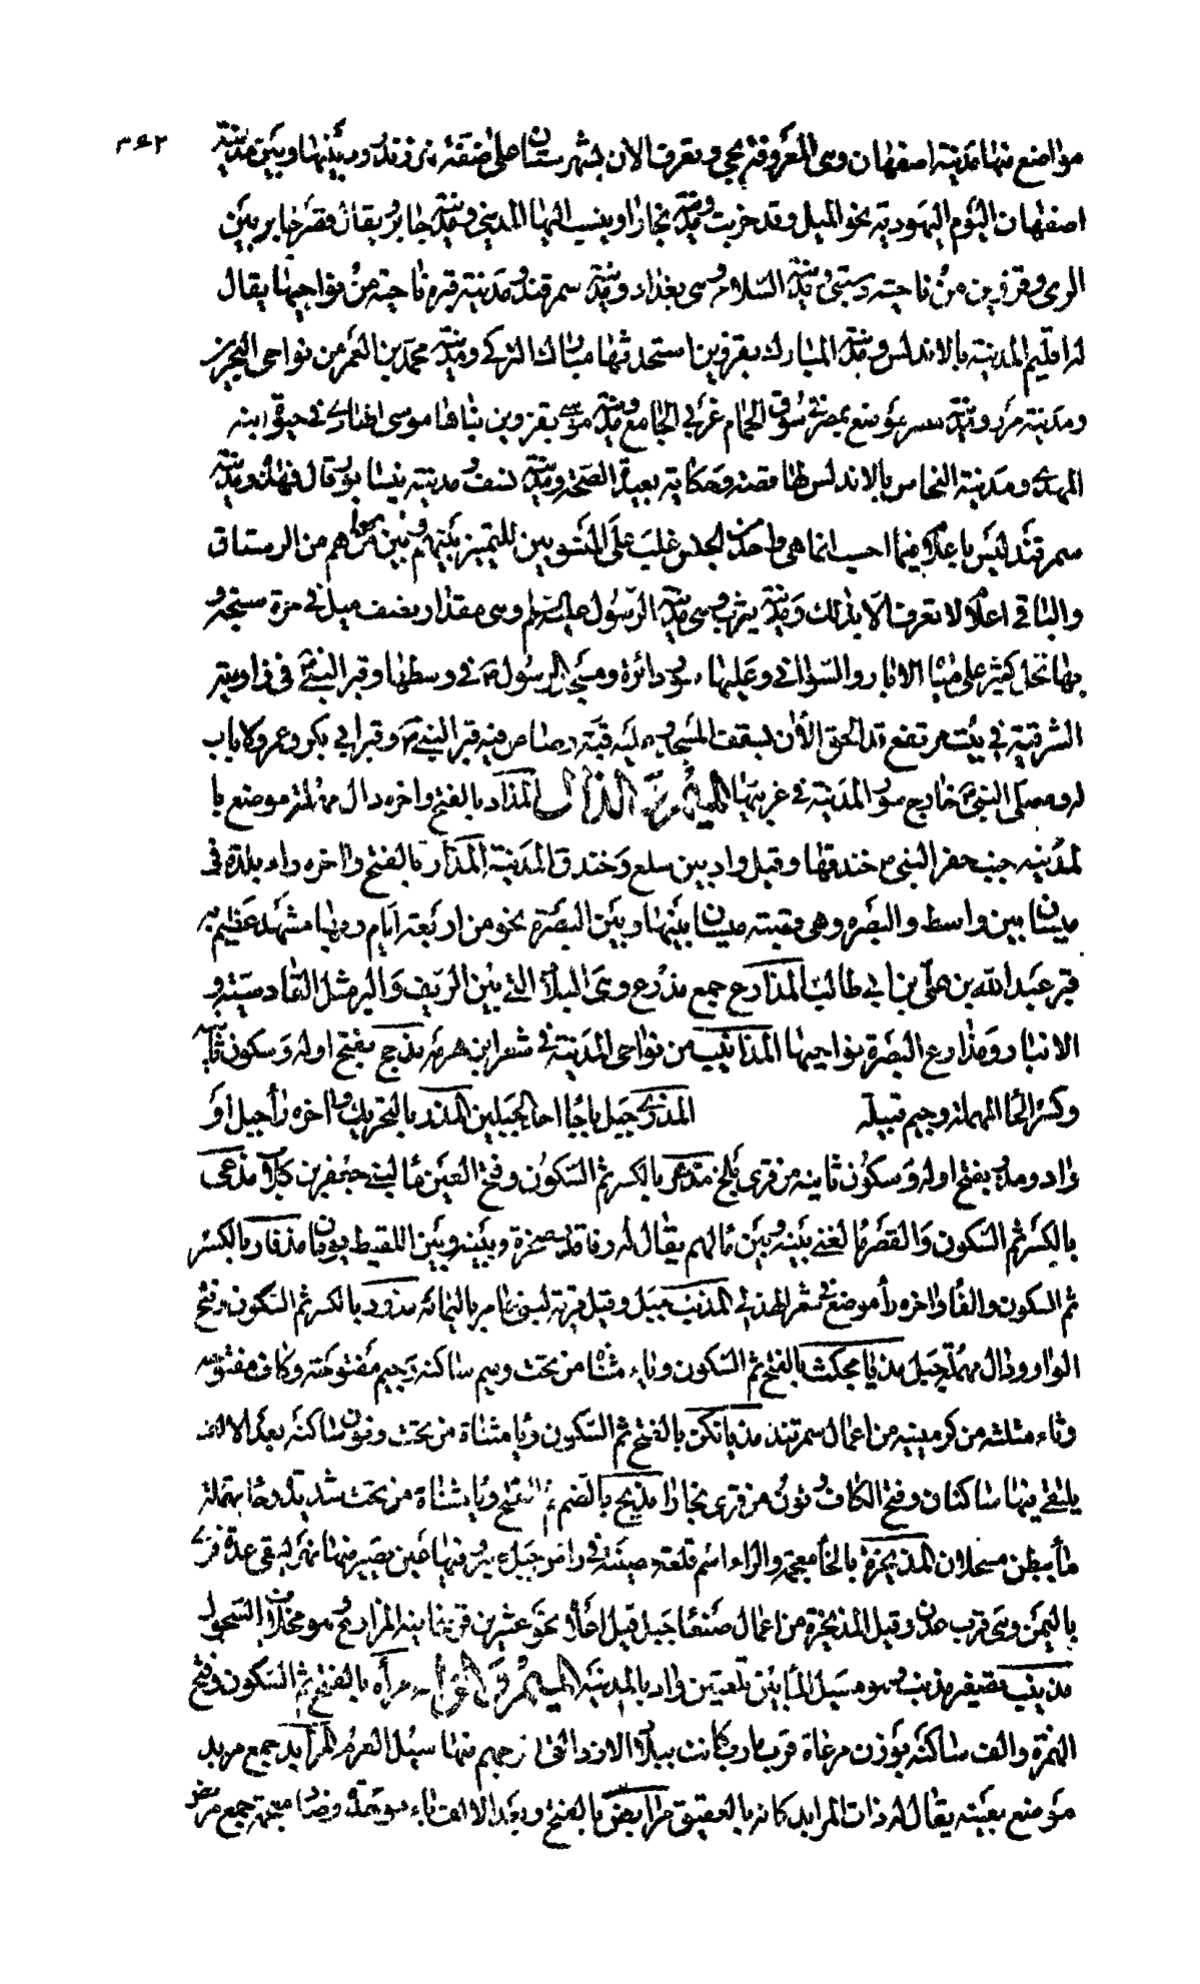 ٣٤٢
مواضع منها مدينة اصفهان وهى المعروفة بجى وتعرف الان بشهرستان على ضفة زندرود بينها وبين مدينة
اصفهان اليوم اليهودية نحو الميل وقد خربت ومدينة بخارا وينسب اليها المدينى ومدينة جابر ويقال قصر جابر بين
الرى وقزوين من ناحية دستبى ومدينة السلام وهى بغداد ومدينة سمرقند ومدينة قبرة ناحية من نواحيها يقال
له اقليم المدينة بالاندلس ومدينة المبارك بقزوين استحدثها مبارك التركى ومدينة محمد بن الغمر من نواحى البحرين
ومدينة مرو ومدينة مصر موضع بمصر فى سوق الحمام غربى الجامع ومدينة موسى بقزوين بناها موسى الهادى فى حيوة ابيه
المهدى ومدينة النحاس بالاندلس لها قصة وحكاية بعيدة الصحة ومدينة نسف ومدينة نيسابور قال فهذه ومدينة
سمرقند ليس باعلام فيما احسب انما هى واحدة من الجنس غلب على المنسوبين للتمييز بينهم وبين من سواهم من الرستاق
والباقى اعلام لا تعرف الا بذلك ومدينة يثرب وهى مدينة الرسول عليه السلام وهى مقدار نصف ميل فى حرة سبخة و
بها نخل كثير على مياه الابار والسوانى وعليها سور دائرة ومسجد الرسول ص فى وسطها وقبر النبى ص فى زاويته
الشرقية فى بيت مرتفع قد الحق الان بسقف المسجد عليه قبة رصاص فيه قبر النبى ص وقبر ابى بكر وعمر ولا باب
له ومصلى النبى ص خارج سور المدينة فى غربيها الميم والذال المذاد بالفتح واخره دال مهملة موضع با
لمدينه حيث حفر النبى ص خندقها وقيل واد بين سلع وخندق المدينة المذار بالفتح واخره راء بلدة فى
ميسان بين واسط والبصره وهى قصبة ميسان بينها وبين البصرة نحو من اربعة ايام وبها مشهد عظيم به
قبر عبد الله بن على بن ابى طالب المذارع جمع مذرع وهى البلاد التى بين الريف والبر مثل القادسية و
الانبار ومذارع البصرة نواحيها المذانيب من نواحى المدينة فى شعر ابن هرمه مذحج بفتح اوله وسكون ثانيه
وكسر الحا المهملة وجيم قبيلة المذبح جبل باجا احد الجبلين المذر بالتحريك واخره راء جبل او
واد ومذر بفتح اوله وسكون ثانيه من قرى بلخ مذعر بالكسر ثم السكون وفتح العين ما لبنى جعفر بن كلاب مذعى
بالكسر ثم السكون والقصر ما لغنى بينه وبين ما لهم يقال له رقا قدر صخرة وبينه وبين اللقيط يومان مذفار بالكسر
ثم السكون والفا واخره را موضع فى شعر الهذلى المذنب جبل وقيل قرية لبنى عامر باليمامه مذود بالكسر ثم السكون وفتح
الواو ودال مهملة جبل مذيامجكث بالفتح ثم السكون وياء مثناة من تحت وميم ساكنه وجيم مفتوحة وكاف مفتوحه
وثاء مثلثه من كرمينيه من اعمال سمرقند مذيانكن بالفتح ثم السكون ويا مثناة من تحت ونون ساكنه بعد الالف
يلتقى فيها ساكنان وفتح الكاف ونون من قرى بخارا مذيح بالضم ثم الفتح ويا مثناة من تحت شديدة وحا مهملة
ما ببطن مسحلان المذيخرة بالخا معجمة والراء اسم قلعة حصينه فى راس جبل صبر وفيها عين يصير منها نهر يسقى عدة قرى
باليمن وهى قرب عدن وقيل المذيخرة من اعمال صنعا جبل قيل اعلاه نحو عشرين فرسخا فيه المزارع وهو مخلاف السحول
مذينب تصغير مذنب وهو مسيل الما بين تلعتين واد بالمدينة الميم والراء مرآه بالفتح ثم السكون وفتح
الهمزة والف ساكنه بوزن مرعاة قرب مارب كانت ببلاد الازد التى اخرجهم منها سيل العرم المرابد جمع مربد
موضع بعينه يقال له ذات المرابد كانه بالعقيق مرابض بالفتح وبعد الالف باء موحدة وضاد معجمة جمع مربض